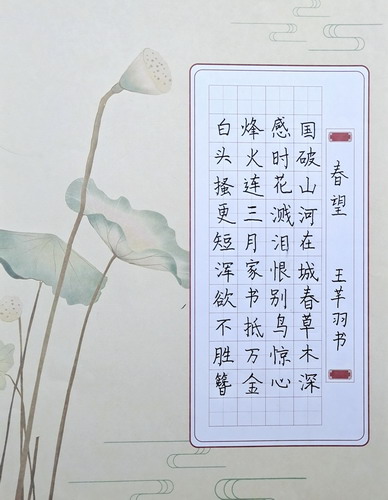 春望 王芊羽书
国破山河在城春草木深
感时花溅泪恨别鸟惊心
烽火连三月家书抵万金
白头搔更短浑欲不胜簪